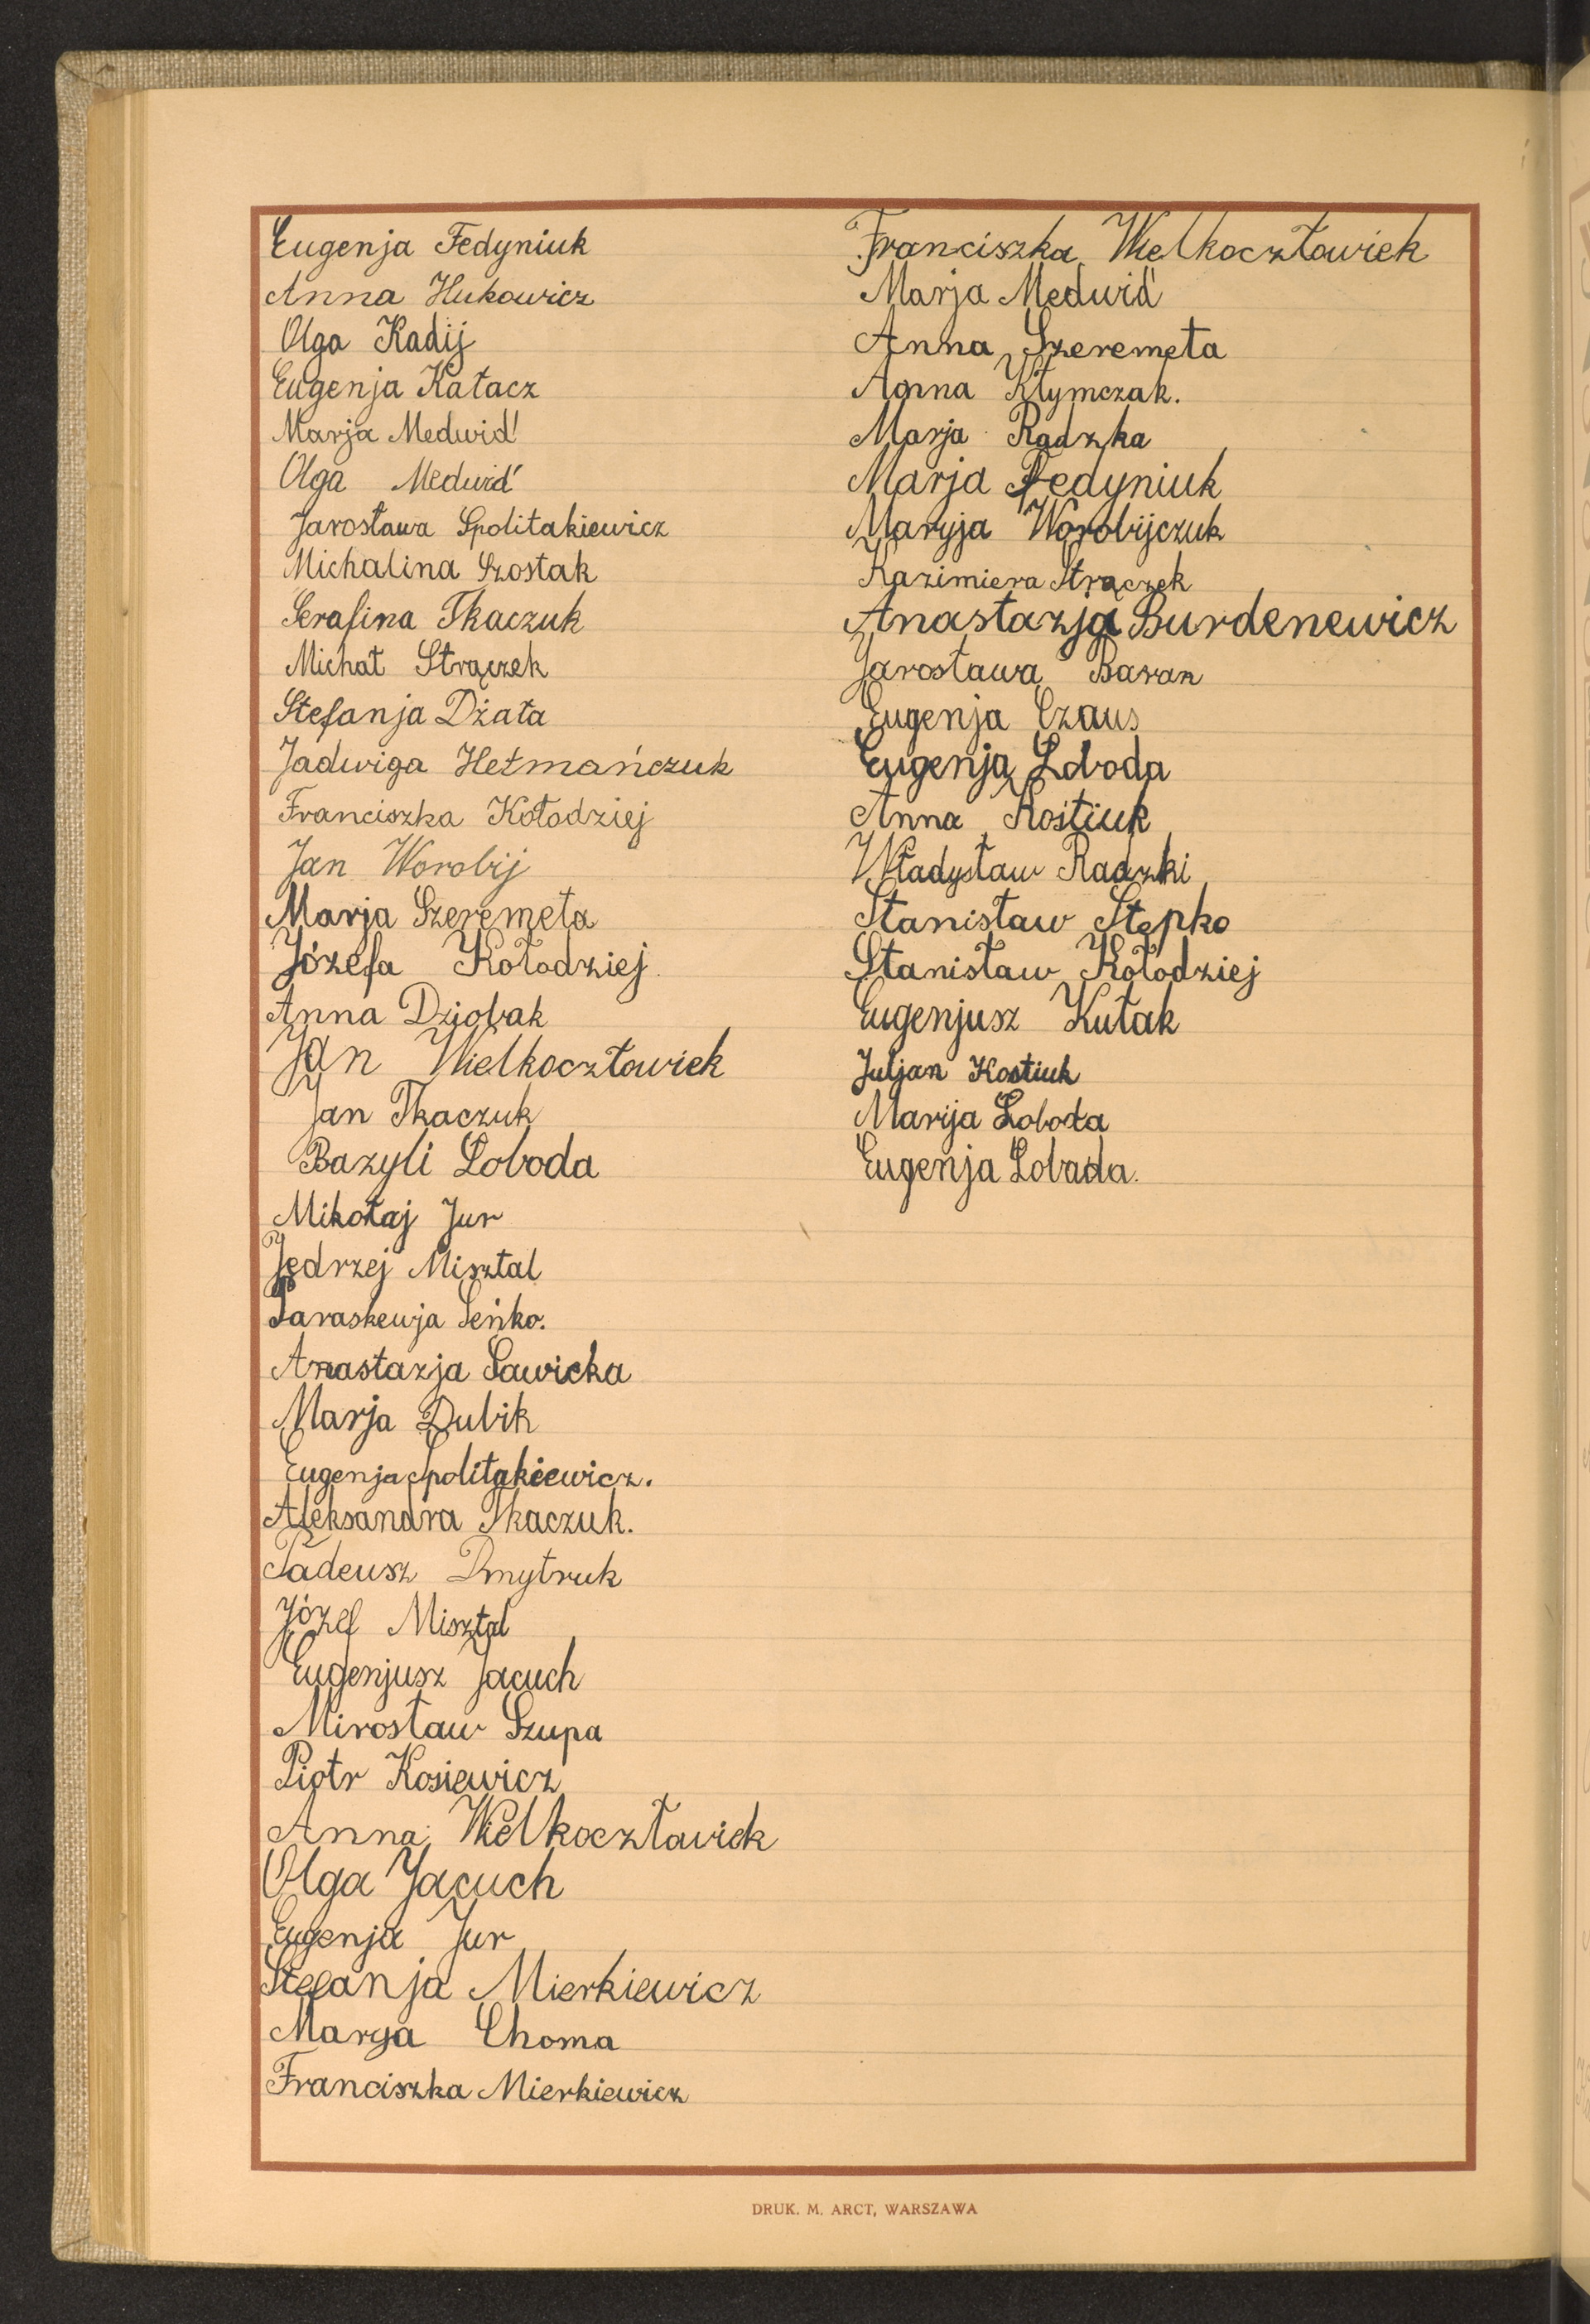 Eugenja Fedyniuk
Anna Hukowicz
Olga Kadij
Eugenja Kałacz
Marja Medwid'
Olga Medwid'
Jarosława Spolitakiewicz
Michalina Szostak
Serafina Tkaczuk
Michał Strączek
Stefanja Dżała
Jadwiga Hetmańczuk
Franciszka Kołodziej
Jan Worobij
Marja Szeremeta
Józefa Kołodziej
Anna Dziobak
Jan Wielkoczłowiek
Jan Tkaczuk
Bazyli Łoboda
Mikołaj Jur
Jędrzej Misztal
Paraskewja Seńko.
Anastazja Sawicka
Marja Dubik
Eugenja Spolitakiewicz.
Aleksandra Tkaczuk.
Tadeusz Dmytruk
Józef Misztal
Eugenjusz Jacuch
Mirosław Szupa
Piotr Kosiewicz
Anna Wielkoczłowiek
Olga Jacuch
Eugenja Jur
Stefanja Mierkiewicz
Marya Choma
Franciszka Mierkiewicz
Franciszka Wielkoczłowiek
Marja Medwid'
Anna Szeremeta
Anna Kłymczak.
Marja Radzka
Marja Fedyniuk
Maryja Worobijczuk
Kazimiera Strączek
Anastazja Burdenewicz
Jarosława Baran
Eugenja Czaus
Eugenja Łoboda
Anna Kostiuk
Władysław Radzki
Stanisław Stępko
Stanisław Kołodziej
Eugenjusz Kułak
Juljan Kostiuk
Marija Łoboda
Eugenja Łoboda.
DRUK. M. ARCT, WARSZAWA